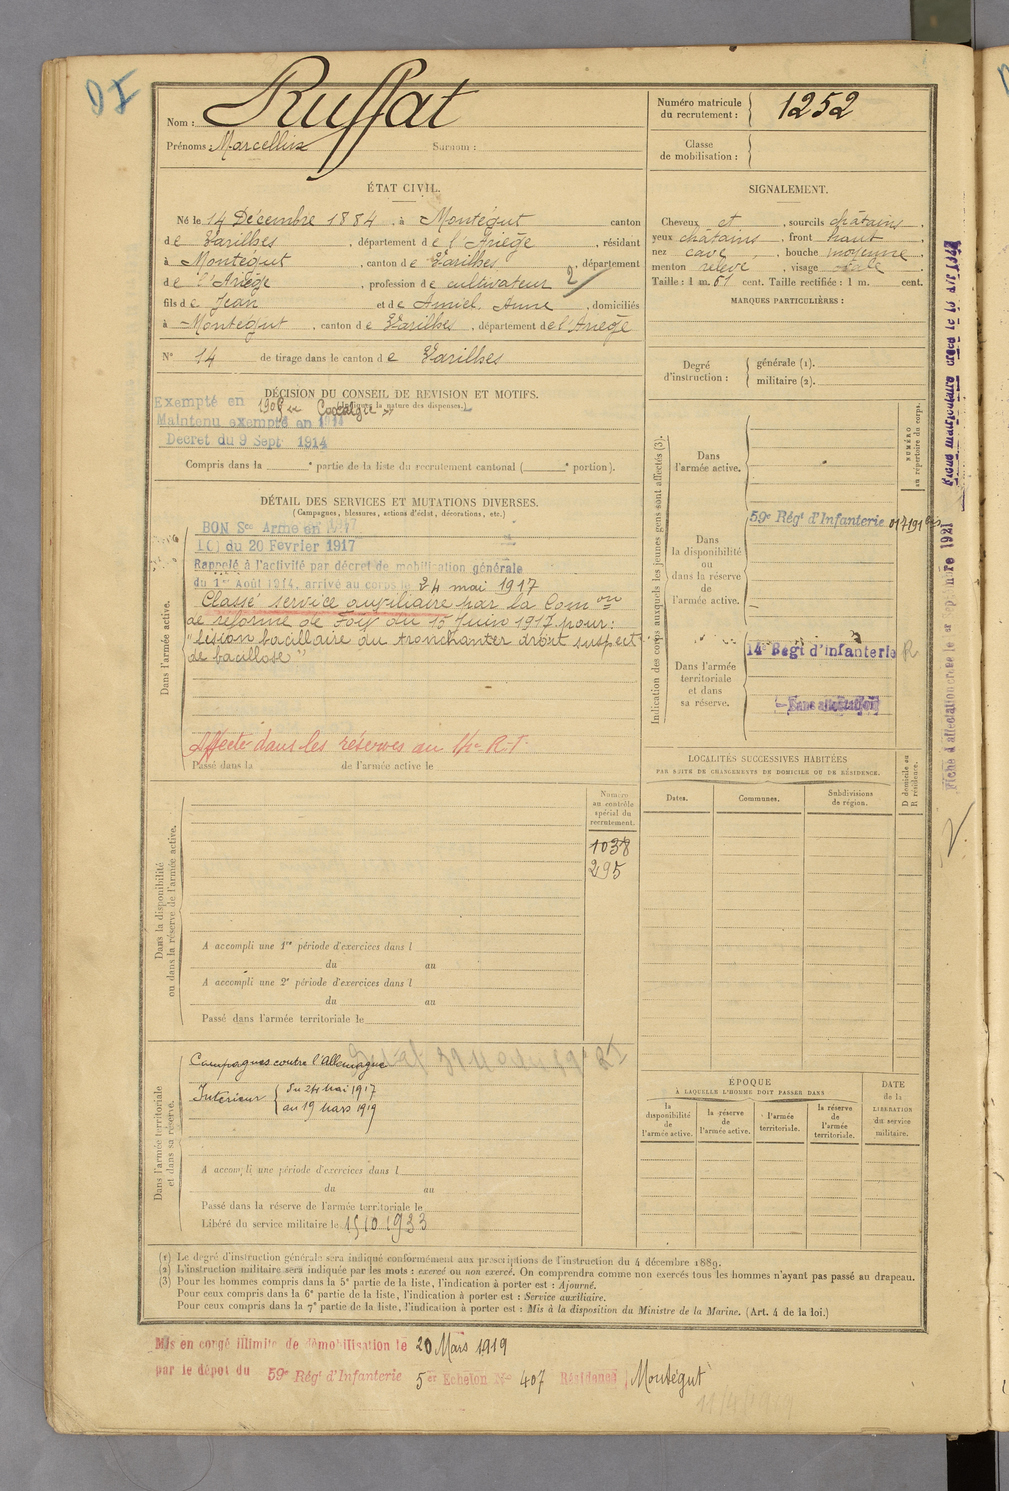 Nom : Ruffat
Prénoms : Marcellin Surnom :
Numéro matricule du recrutement : 1252
Classe de mobilisation :
ÉTAT CIVIL.
Né le 14 Décembre 1884, à Montégut canton
de Varilhes, département de l'Ariège, résidant
à Montégut, canton de Varilhes, département
de l'Ariège, profession de cultivateur 2/
fils de Jean et de Amiel Anne, domiciliés
à Montégut, canton de Varilhes, département de l'Ariège
N° 14 de tirage dans le canton de Varilhes
SIGNALEMENT.
Cheveux et, sourcils châtains
yeux châtains, front haut
nez cave, bouche moyenne
menton relevé, visage ovale
Taille : 1 m. 61 cent. Taille rectifiée : 1 m. cent.
MARQUES PARTICULIÈRES :
Degré d'instruction : générale (1).
militaire (2).
DÉCISION DU CONSEIL DE REVISION ET MOTIFS.
(Indiquer la nature des dispenses.)
Exempté en Coxalgie
Maintenu exempté en 1914
Décret du 9 Sept 1914
Compris dans la e partie de la liste du recrutement cantonal ( e portion).
DÉTAIL DES SERVICES ET MUTATIONS DIVERSES.
(Campagnes, blessures, actions d'éclat, décorations, etc.)
Dans l'armée active.
BON Sce Armé en 1917
du 20 Février 1917
Rappelé à l'activité par décret de mobilisation générale
du 1er Août 1914, arrivé au corps le 24 mai 1917
Classé service auxiliaire par la Comon
de réforme de Foix du 15 Juin 1917 pour :
"Lésion bacillaire du tronchanter droit suspect
de bacillose"
Affecté dans les réserves au 14e R.I.
Passé dans la de l'armée active le
Indication des corps auxquels les jeunes gens sont affectés (3).
NUMÉRO au répertoire du corps.
Dans l'armée active.
Dans la disponibilité ou dans la réserve de l'armée active.
59e Régt d'Infanterie 017191 bis
Dans l'armée territoriale et dans sa réserve.
14e Régt d'Infanterie R
Sans affectation
Fiche d'affectation créée le 1er Septembre 1921
LOCALITÉS SUCCESSIVES HABITÉES
PAR SUITE DE CHANGEMENTS DE DOMICILE OU DE RÉSIDENCE.
Dates. Communes. Subdivisions de région. D domicile ou R résidence.
Dans la disponibilité ou dans la réserve de l'armée active.
Numéro au contrôle spécial du recrutement.
1038
295
A accompli une 1re période d'exercices dans l
du au
A accompli une 2e période d'exercices dans l
du au
Passé dans l'armée territoriale le
Dans l'armée territoriale et dans sa réserve.
Campagnes contre l'Allemagne
Intérieur du 24 Mai 1917
au 19 Mars 1919
A accompli une période d'exercices dans l
du au
Passé dans la réserve de l'armée territoriale le
Libéré du service militaire le 15 10 1933
ÉPOQUE
À LAQUELLE L'HOMME DOIT PASSER DANS
la disponibilité de l'armée active. la réserve de l'armée active. l'armée territoriale. la réserve de l'armée territoriale.
DATE de la LIBÉRATION du service militaire.
(1) Le degré d'instruction générale sera indiqué conformément aux prescriptions de l'instruction du 4 décembre 1889.
(2) L'instruction militaire sera indiquée par les mots : exercé ou non exercé. On comprendra comme non exercés tous les hommes n'ayant pas passé au drapeau.
(3) Pour les hommes compris dans la 5e partie de la liste, l'indication à porter est : Ajourné.
Pour ceux compris dans la 6e partie de la liste, l'indication à porter est : Service auxiliaire.
Pour ceux compris dans la 7e partie de la liste, l'indication à porter est : Mis à la disposition du Ministre de la Marine. (Art. 4 de la loi.)
Mis en congé illimité de démobilisation le 20 Mars 1919
par le dépot du 59e Régt d'Infanterie 5er Echelon No 407 Résidence Montégut